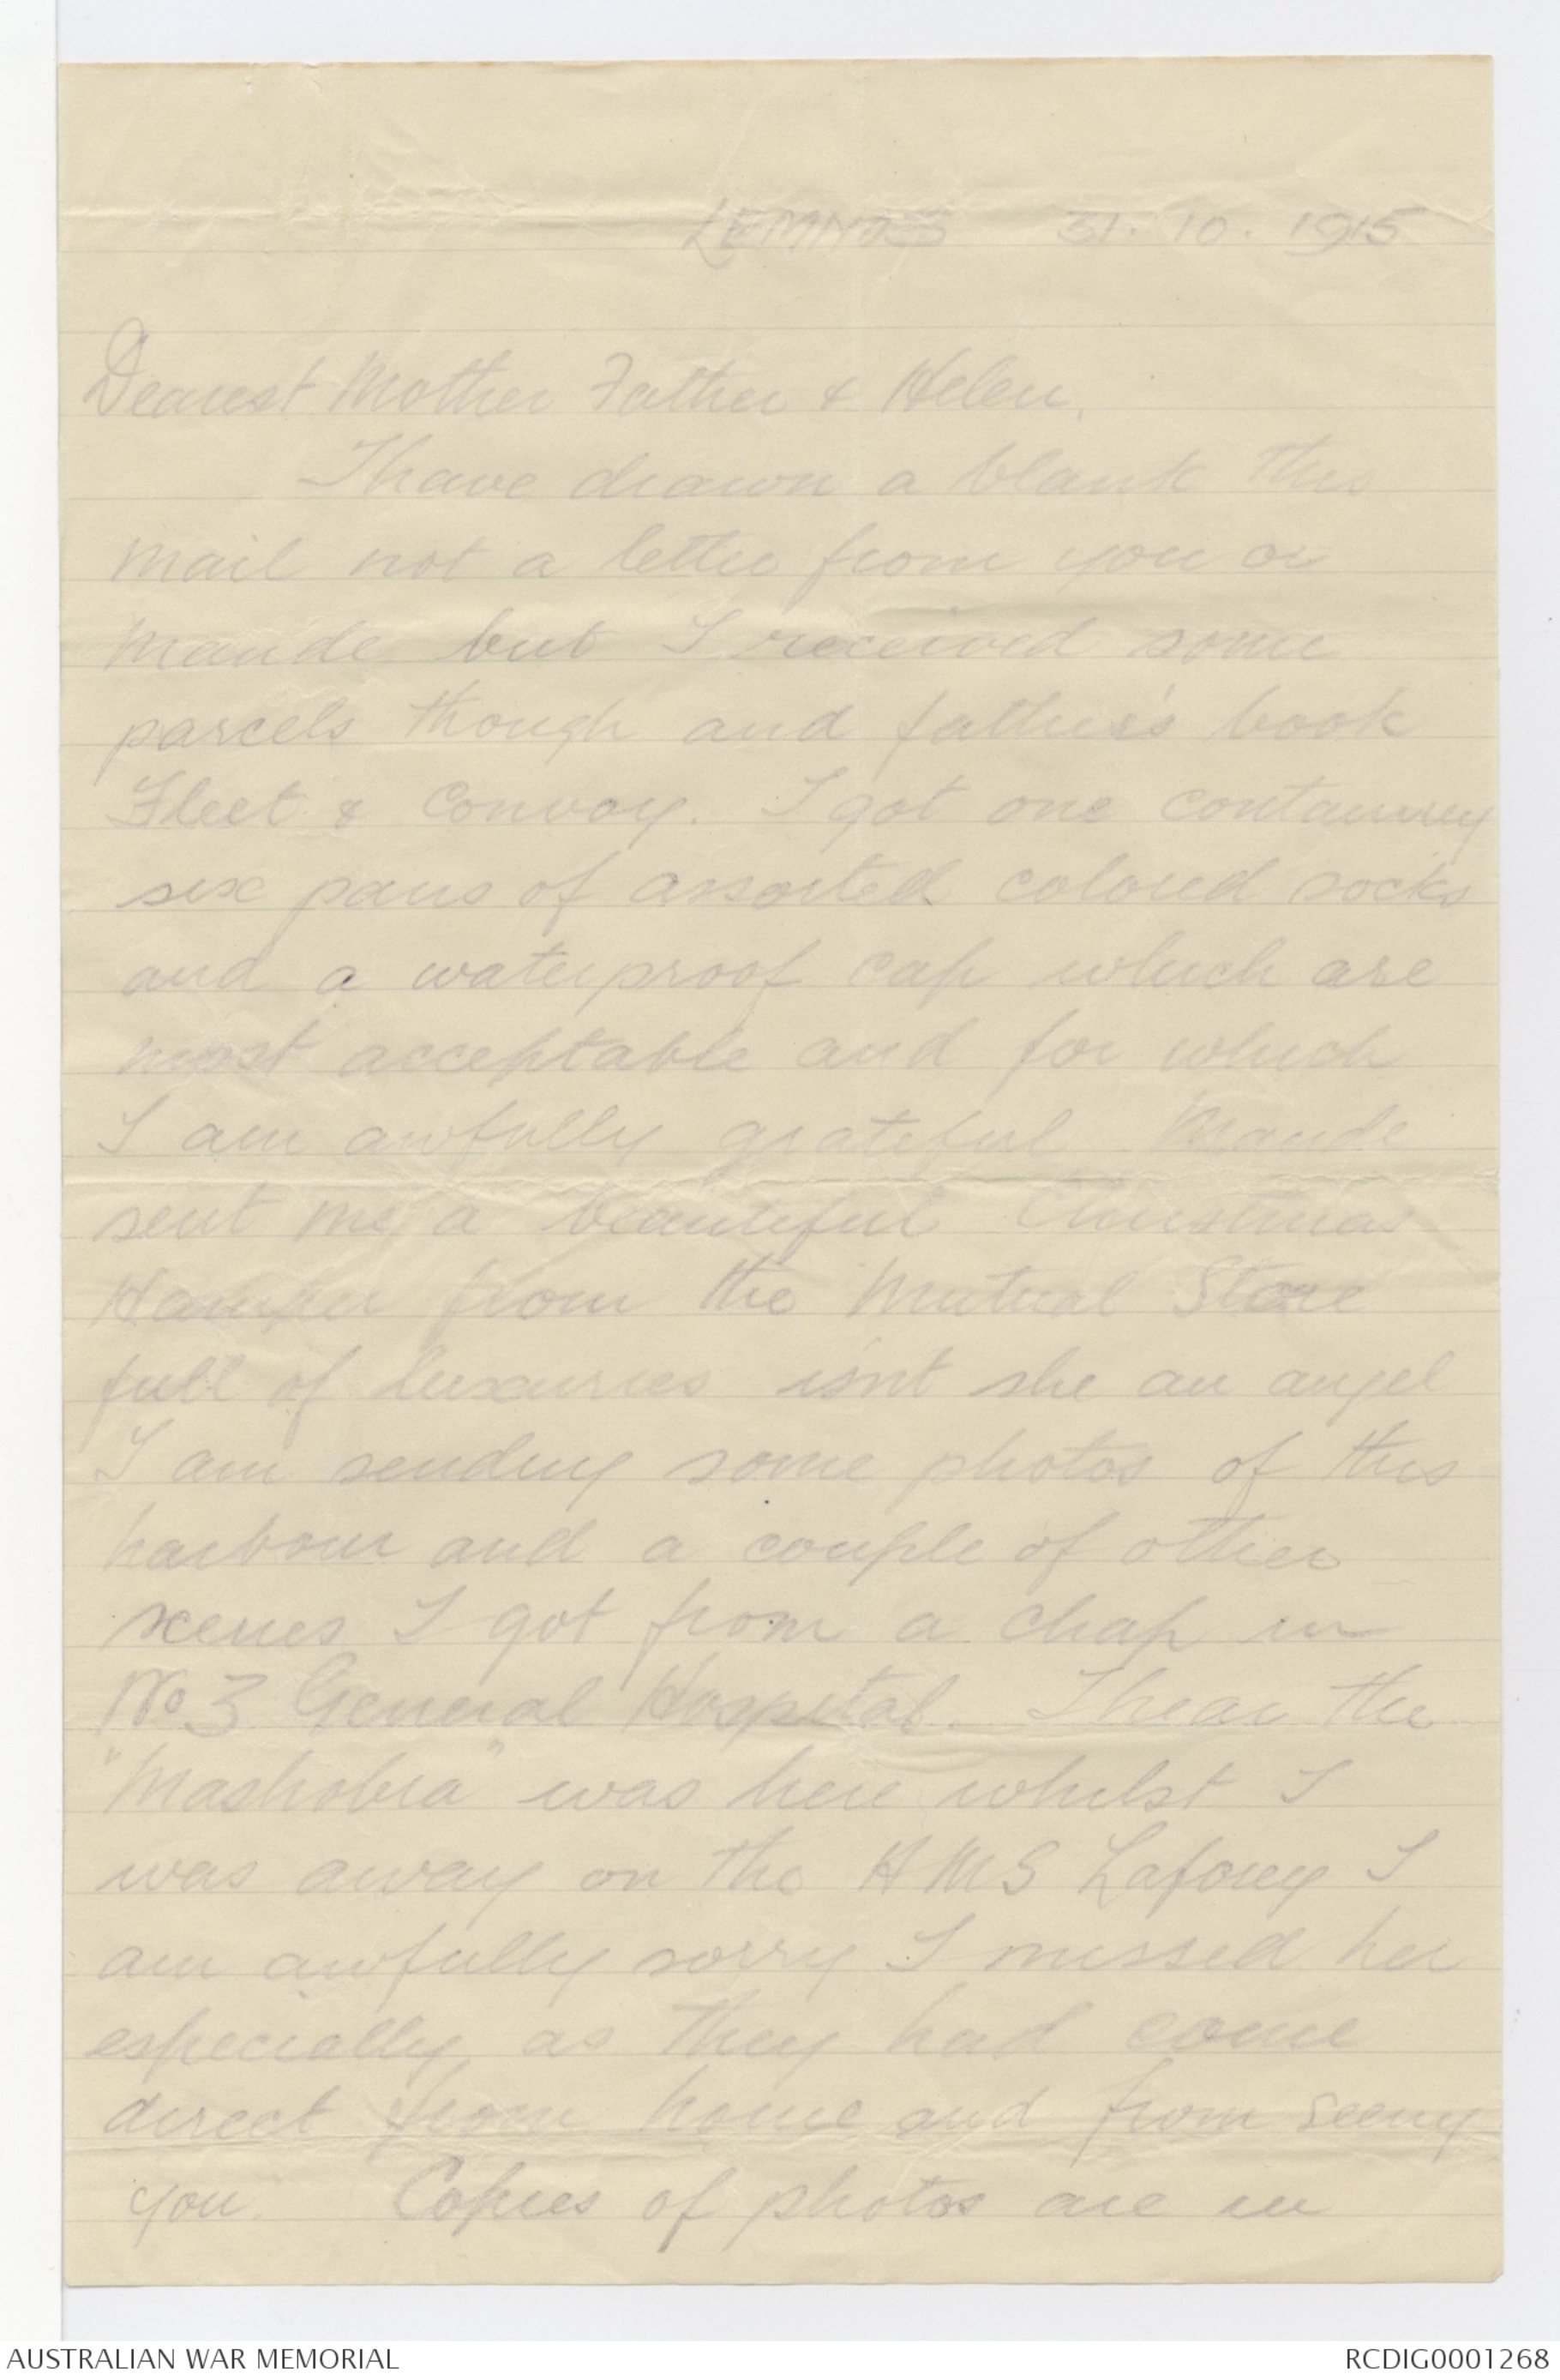 LEMNOS 31.10.1915
Dearest Mother Father & Helen,
I have drawn a blank this
mail not a letter from you or
Maude but I received some
parcels though and father's book
Fleet & Convoy. I got one containing
six pairs of assorted colored socks
and a waterproof cap which are
most acceptable and for which
I am awfully grateful Maude
sent me a beautiful Christmas
Hamper from the Mutual Store
full of luxuries isnt she an angel
I am sending some photos of this
harbour and a couple of other
scenes I got from a chap in
No 3 General Hospital. I hear the
"Mashobra" was here whilst I
was away on the HMS Laforey I
am awfully sorry I missed her
especially as they had come
direct from home and from seeing
you. Copies of photos are in
AUSTRALIAN WAR MEMORIAL
RCDIG0001268